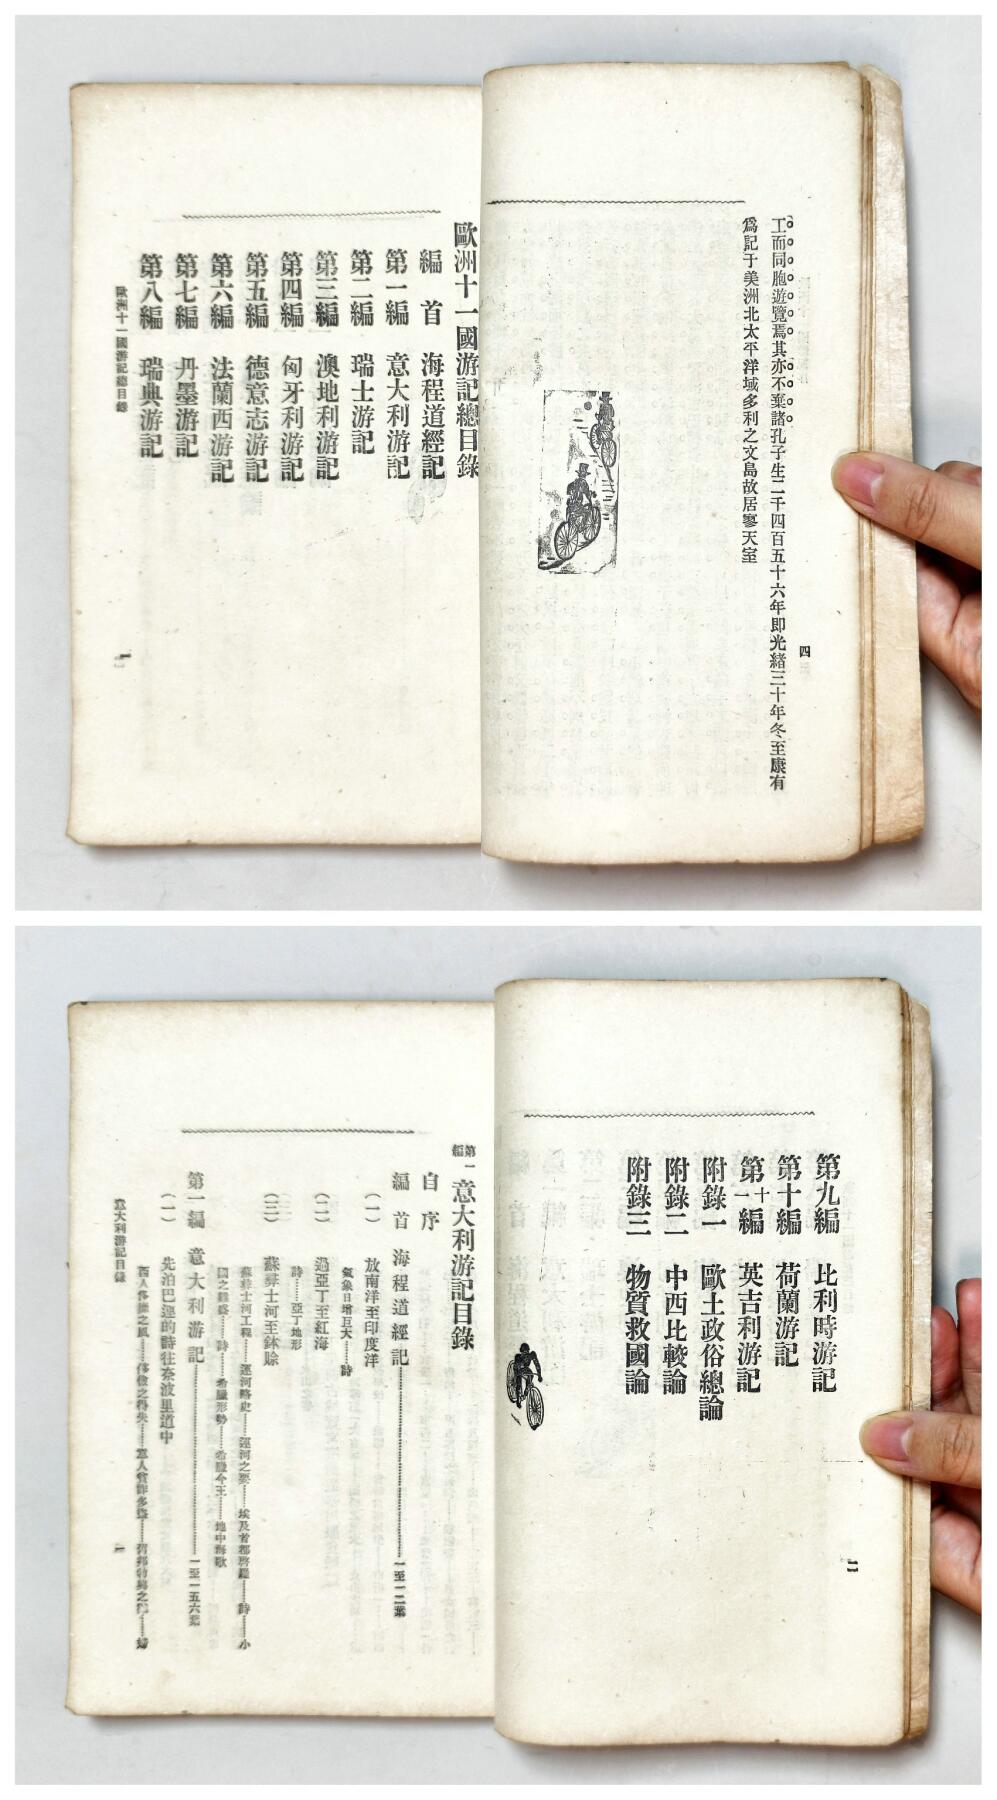 工而同胞遊覽焉其亦不棄諸孔子生二千四百五十六年即光緒三十年冬至康有
爲記于美洲北太平洋域多利之文島故居寥天室
四
歐洲十一國游記總目錄
編首 海程道經記
第一編 意大利游記
第二編 瑞士游記
第三編 澳地利游記
第四編 匈牙利游記
第五編 德意志游記
第六編 法蘭西游記
第七編 丹墨游記
第八編 瑞典游記
歐洲十一國游記總目錄
一
第九編 比利時游記
第十編 荷蘭游記
第十一編 英吉利游記
附錄一 歐土政俗總論
附錄二 中西比較論
附錄三 物質救國論
二
第一編 意大利游記目錄
自序
編首 海程道經記……一至一二葉
（一） 放南洋至印度洋
氣象日增巨大……詩
（二） 過亞丁至紅海
詩……亞丁地形
（三） 蘇彝士河至鉢賒
蘇彝士河工程……運河略史……運河之要……埃及首都啓羅……詩……小
國之難盛……詩……希臘形勢……希臘今王……地中海歌
第一編 意大利游記……一至一五六葉
（一） 先泊巴連的詩往奈波里道中
西人侈儉之風……侈儉之得失……意人貧詐多盜……婦
意大利游記目錄
一